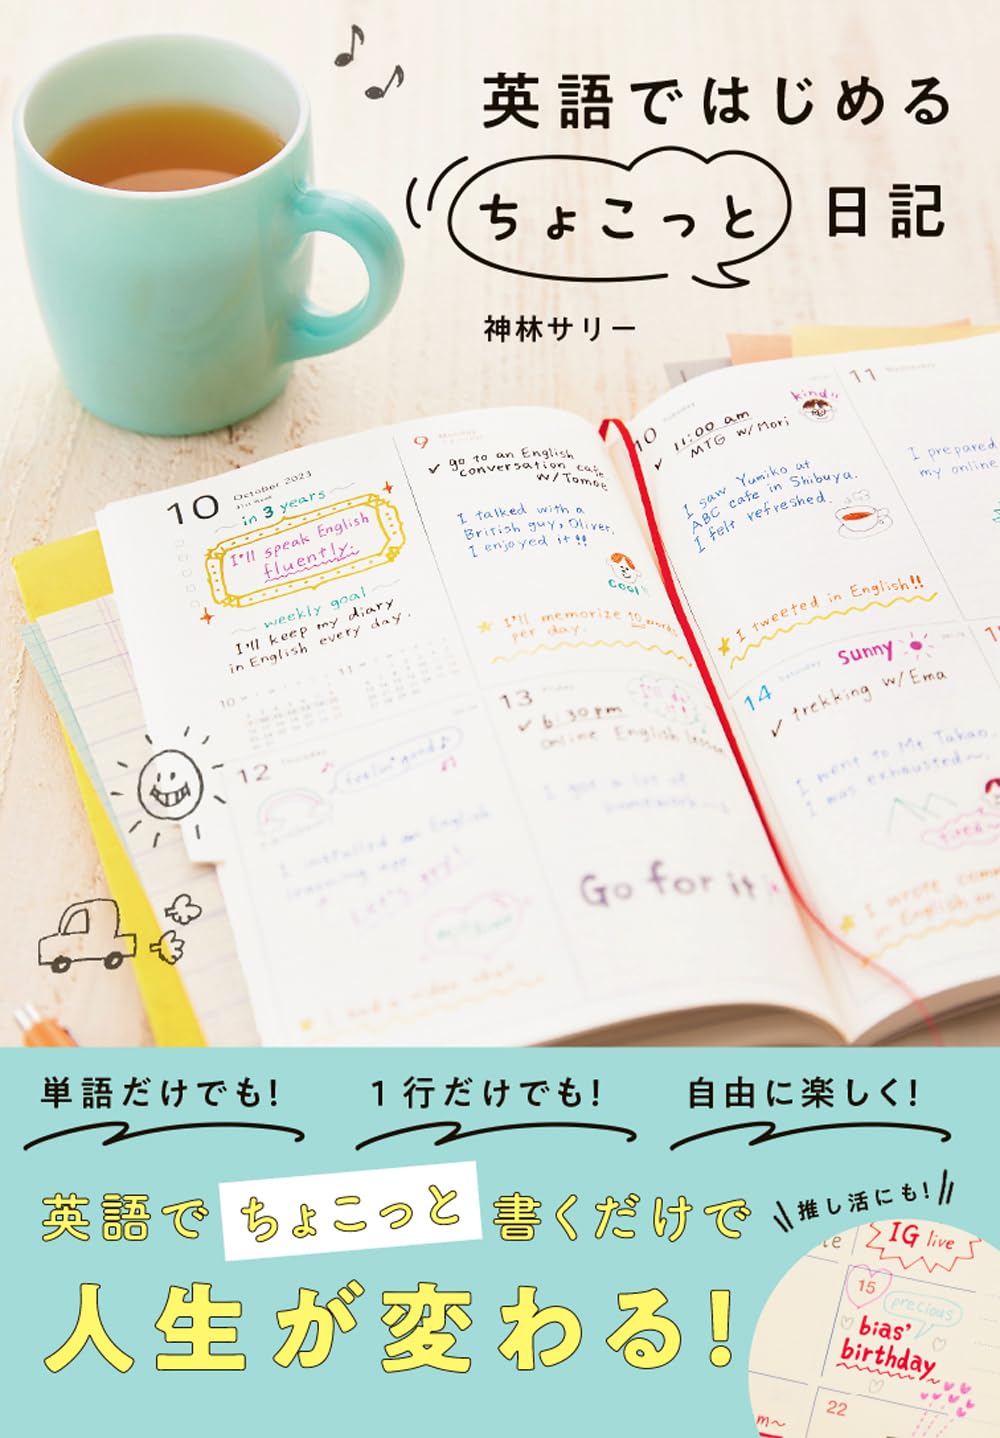 英語ではじめる
ちょこっと日記
神林サリー
10
October 2023
in 3 years
I'll speak English
fluently.
weekly goal
I'll keep my diary
in English every day.
10
11
9
Monday
✓ go to an English
conversation cafe
w/Tomoe
I talked with a
British guy, Oliver.
I enjoyed it!!
cool
I'll memorize 10 words
per day.
10
Tuesday
✓ 11:00 am
MTG w/Mori
kind!!
I saw Yumiko at
ABC cafe in Shibuya.
I felt refreshed.
I tweeted in English!!
11
Wednesday
I prepared
my online
12
Thursday
feelin' good♪
I installed an English
learning app.
Let's try!
13
Friday
✓ 6:30pm
online English lesson
I got a lot of
homework
Go for it
14
Saturday
sunny
✓ trekking w/Ema
I went to Mt Takao.
I was exhausted~.
tired~
I wrote
in English on
単語だけでも!
1行だけでも!
自由に楽しく!
英語でちょこっと書くだけで
人生が変わる!
推し活にも!
IG live
15
precious
bias'
birthday
22
m~